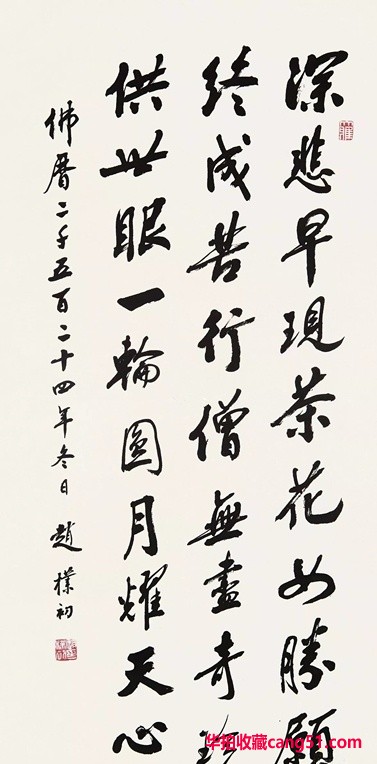 深悲早現茶花女勝願
終成苦行僧無盡奇珍
供世眼一輪圓月耀天心
佛曆二千五百二十四年冬日 趙樸初
华姐收藏cang51.com